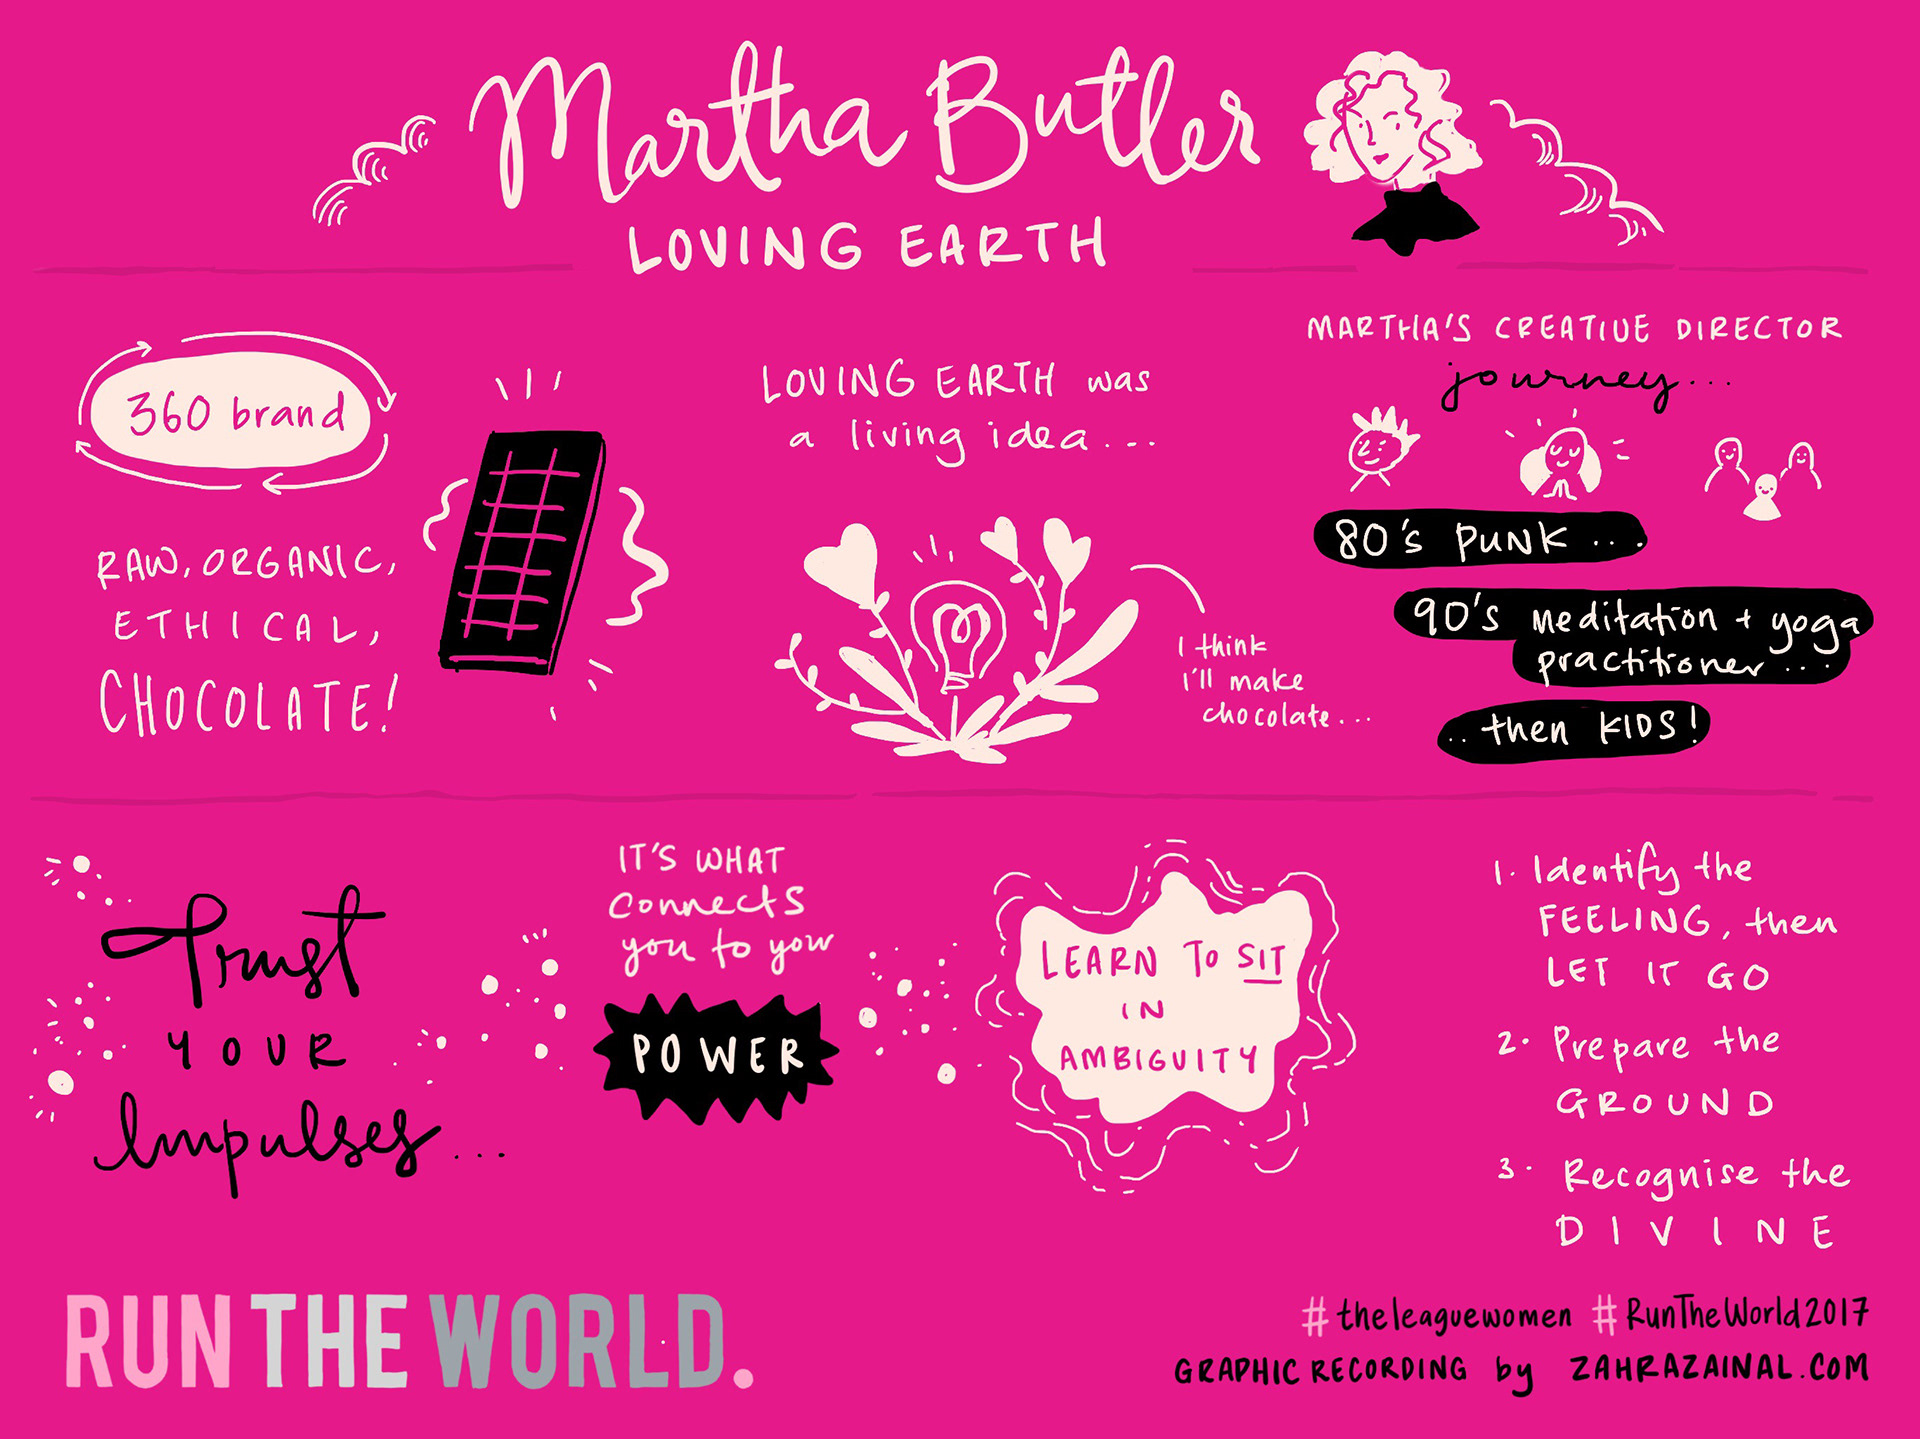 Martha Butler
LOVING EARTH
360 brand
RAW, ORGANIC,
ETHICAL,
CHOCOLATE!
LOVING EARTH was
a living idea...
I think
I'll make
chocolate...
MARTHA'S CREATIVE DIRECTOR
journey...
80's PUNK...
90's meditation + yoga
practitioner...
..then KIDS!
Trust
YOUR
Impulses...
IT'S WHAT
connects
you to your
POWER
LEARN TO SIT
IN
AMBIGUITY
1. Identify the
FEELING, then
LET IT GO
2. Prepare the
GROUND
3. Recognise the
DIVINE
RUN THE WORLD.
#theleaguewomen #RunTheWorld2017
GRAPHIC RECORDING by ZAHRAZAINAL.COM